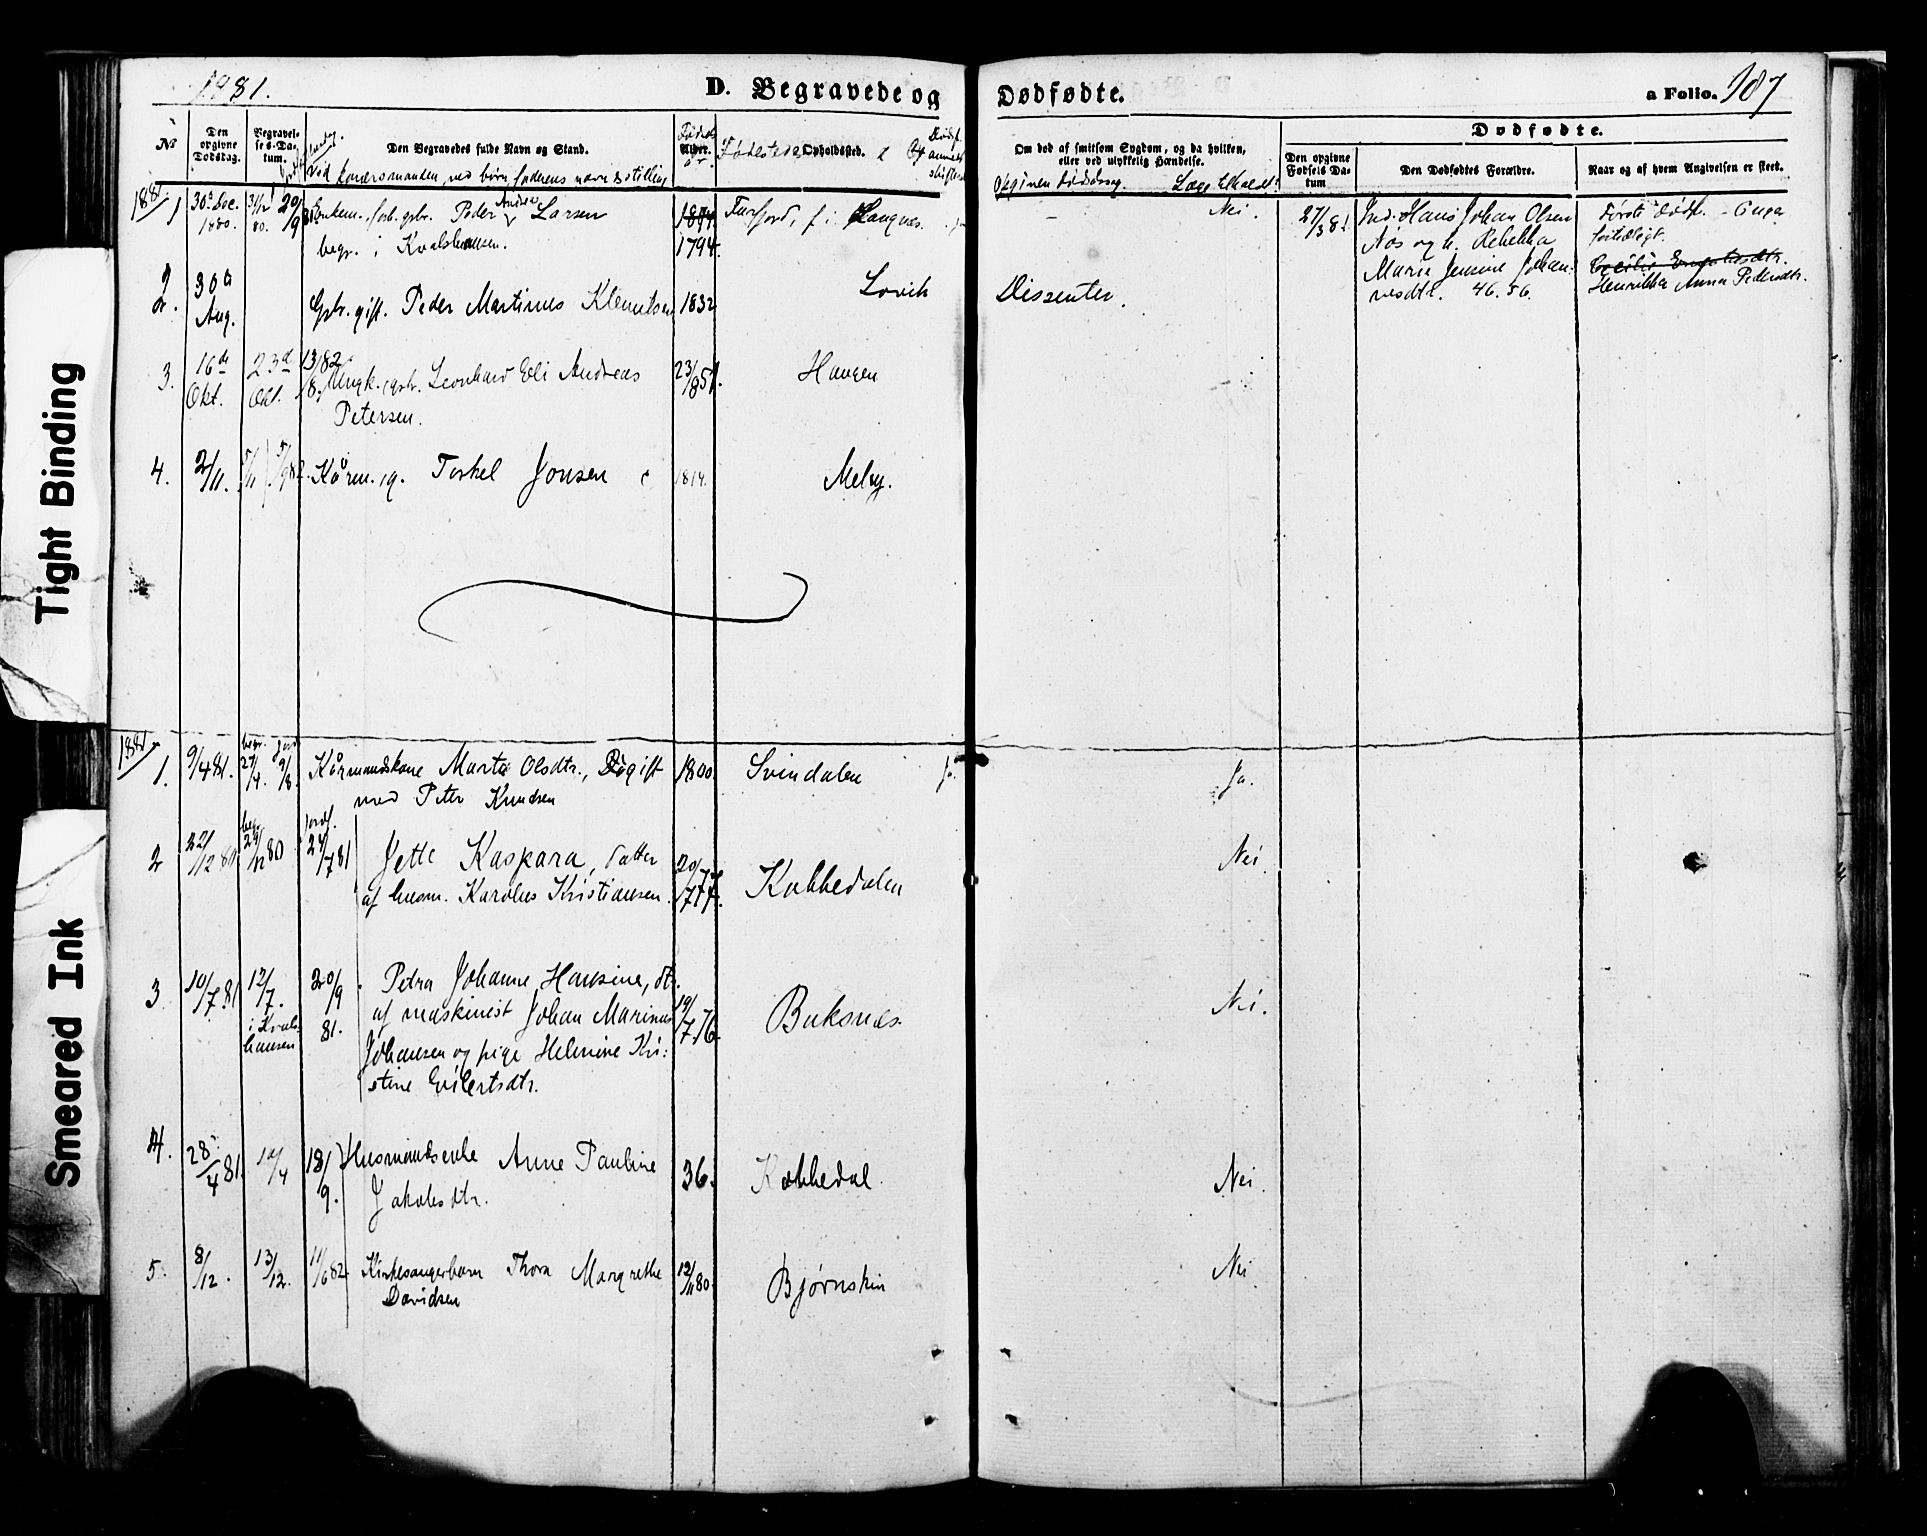 1881.
D. Begravede og
Dødfødte.
a Folio. 187
№
Den opgivne Dødsdag.
Begravelses-Datum.
Den Begravedes fulde Navn og Stand.
ved koners manden, ved børn faderens navn & stilling
Fødselsår
Alder.
Fødested
Opholdssted.
Om død af smitsom Sygdom, og da hvilken,
eller ved ulykkelig Hændelse.
Opgiven dødsårsag. Læge tilkaldt?
Dødfødte.
Den opgivne Fødsels Datum
Den Dødfødtes Forældre.
Naar og af hvem Angivelsen er skeet.
1881
1
30te Dec. 1880.
31/12 80.
20/9 81
Enkem. forh. gbr. Peder Andreas Larsen
begr. i Kvalshausen.
1804
1794
Nei.
27/3 81
Ind. Hans Johan Olsen
Nøs og h. Rebekka
Marie Jensine Johan-
nesdtr. 46. 36.
Første dødf.
Cecilie Engelsdtr.
Henrikka Anna Pedersdtr.
2.
30te Aug.
Gbr. gift. Peder Martinus Klemetsen
1832
Lovik
Dissenter.
3.
16de Okt.
23de Okt.
13/8 82
Ungk. gbr. Leonhard Eli Andreas
Petersen.
Haugen
4.
2/11.
5/11
Kårm. g. Torkel Jonsen
1814.
Melby.
1881
1.
9/4 81.
begr. 27/4.
jord. 9/8.
Kårmandskone Marta Olsdtr., gift
med Peter Knudsen
1800.
Svindalen
Ja.
2
22/12 80
begr. 29/12 80
jordf. 24/7 81
Jette Kaspara, datter
af husm. Karolus Kristiansen.
Kobbedalen
Nei.
3
10/7 81
12/7.
i Kvalshausen
20/9 81.
Petra Johanne Hansine, dt.
af maskinist Johan Marinus
Johansen og pige Helmine Kri-
stine Eilertsdtr.
19/7 76
Buksnæs.
Nei.
4.
28/4 81.
12/4
18/9.
Husmandsenke Anne Pauline
Jakobsdtr.
36.
Kobbedal.
Nei.
5.
8/12.
13/12.
11/6 82.
Kirkesangerbarn Thora Margrethe
Davidsen
12/11 80.
Bjørnskin
Nei.
Tight Binding
Smeared Ink